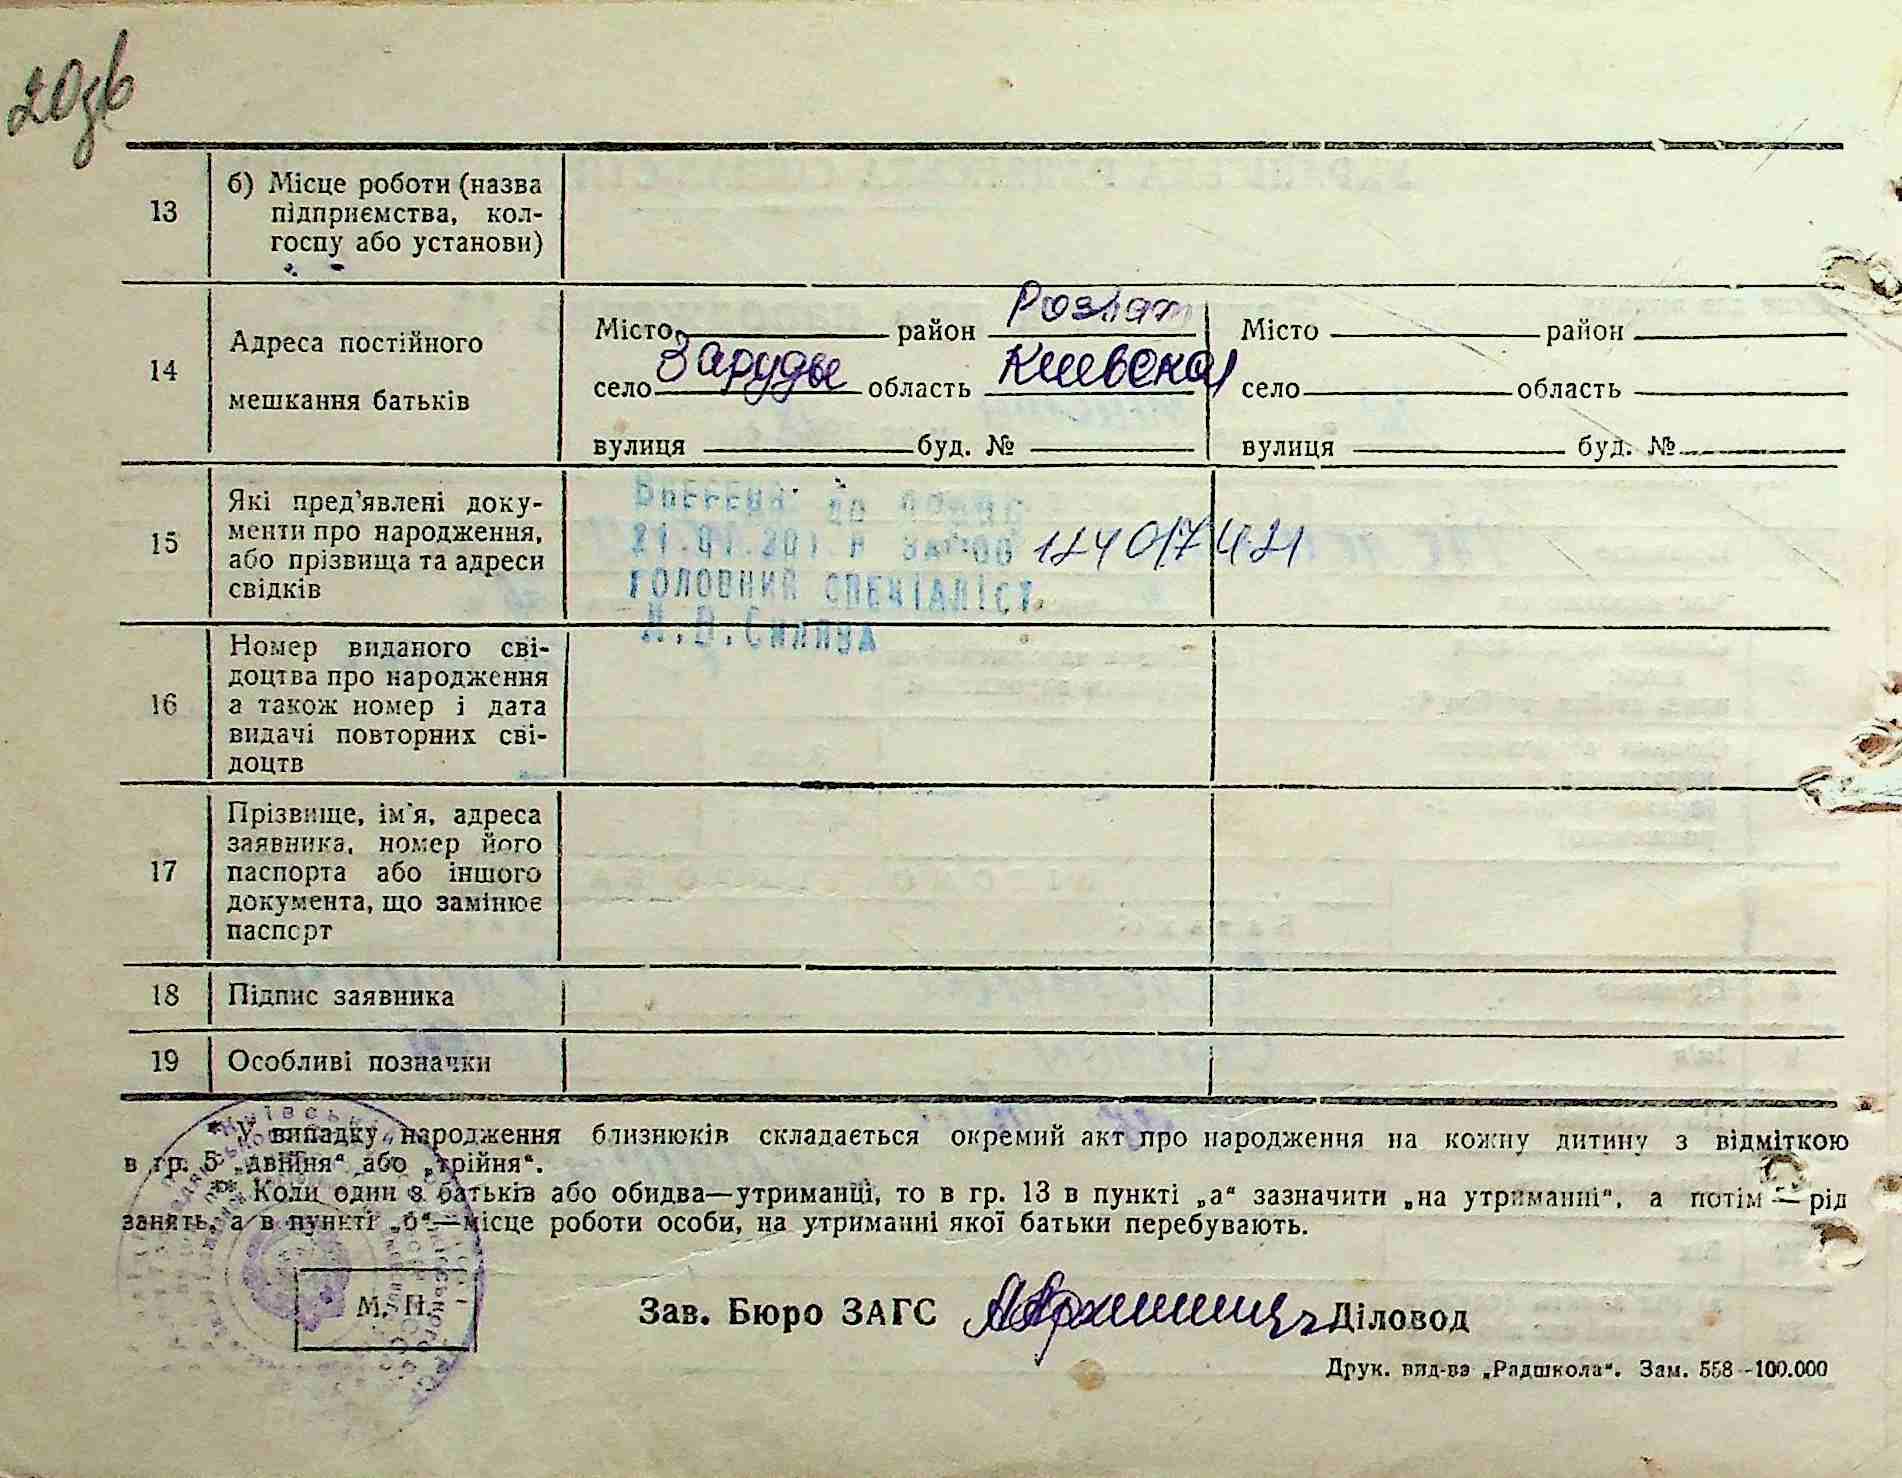 20зв
13
б) Місце роботи (назва
підприємства, кол-
госпу або установи)
14
Адреса постійного
мешкання батьків
Місто район Розваж
село Зарудье область Киевская
вулиця буд. №
Місто район
село область
вулиця буд. №
15
Які пред'явлені доку-
менти про народження,
або прізвища та адреси
свідків
ГОЛОВНИЙ СПЕЦІАЛІСТ
16
Номер виданого сві-
доцтва про народження
а також номер і дата
видачі повторних сві-
доцтв
17
Прізвище, ім'я, адреса
заявника, номер його
паспорта або іншого
документа, що замінює
паспорт
18
Підпис заявника
19
Особливі позначки
* У випадку народження близнюків складається окремий акт про народження на кожну дитину з відміткою
в гр. 5 „двійня“ або „трійня“.
** Коли один з батьків або обидва—утриманці, то в гр. 13 в пункті „а“ зазначити „на утриманні“, а потім — рід
занять, а в пункті „б“—місце роботи особи, на утриманні якої батьки перебувають.
М. П.
Зав. Бюро ЗАГС Діловод
Друк. вид-ва „Радшкола“. Зам. 558 -100.000